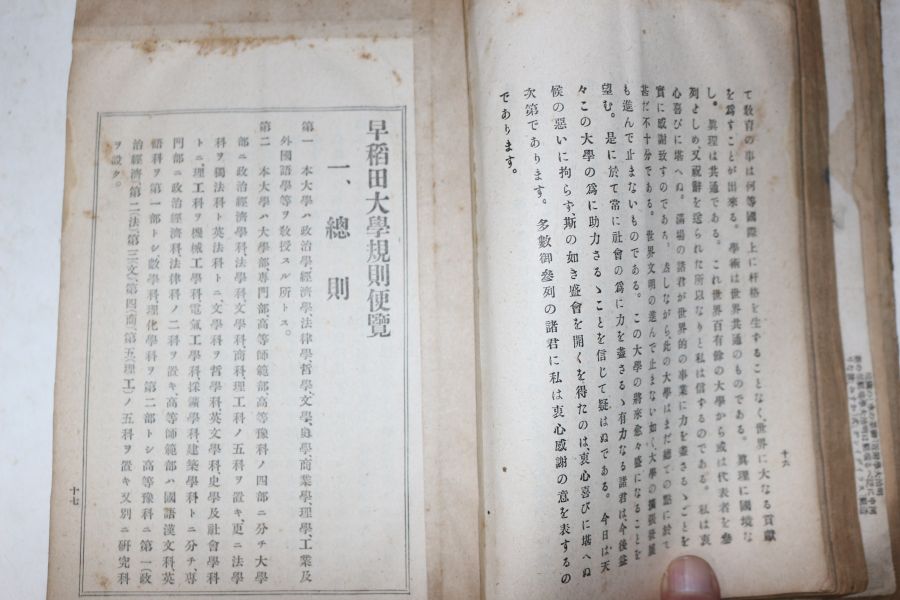 て敎育の事は何等國際上に杆格を生ずることなく、世界に大なる貢獻
を爲すことが出來る。學術は世界共通のものである。眞理に國境な
し。眞理は共通である。これ世界百有餘の大學から或は代表者を參
列せしめ、又祝辭を送られた所以なりと私は信ずるのである。私は衷
心喜びに堪へぬ。滿場の諸君が世界的の事業に力を盡さるゝことを
實に感謝致すのであります。然しながら、此の大學はまだ總ての點に於て
甚だ不十分である。世界文明の進んで止まない如く、大學の擴張發展
も進んで止まないものである。この大學の將來愈々盛になることを
望む。是に於て常に社會の爲に力を盡さるゝ有力なる諸君は、今後益
々この大學の爲に助力さるゝことを信じて疑はぬである。今日は天
候の惡いに拘らず、斯の如き盛會を開くを得たのは、衷心喜びに堪へぬ
次第であります。多數御參列の諸君に私は衷心感謝の意を表するの
であります。
十六
早稻田大學規則便覽
一、總則
第一　本大學ハ政治學經濟學、法律學、哲學、文學、史學、商業學、理學、工業及
外國語學等ヲ敎授スル所トス。
第二　本大學ハ大學部、專門部、高等師範部、高等豫科ノ四部ニ分チ大學
部ニ政治經濟學科、法學科、文學科、商科、理工科ノ五科ヲ置キ、更ニ法學
科ヲ獨法科ト英法科トニ、文學科ヲ哲學科英文學科史學及社會學科
トニ、理工科ヲ機械工學科、電氣工學科、採鑛學科、建築學科トニ分チ、專
門部ニ政治經濟科、法律科ノ二科ヲ置キ、高等師範部ハ國語漢文科、英
語科ヲ第一部トシ、數學科、理化學科ヲ第二部トシ高等豫科ニ第一(政
治經濟)第二(法)第三(文)第四(商)第五(理工)ノ五科ヲ置キ又別ニ硏究科
ヲ設ク。
十七